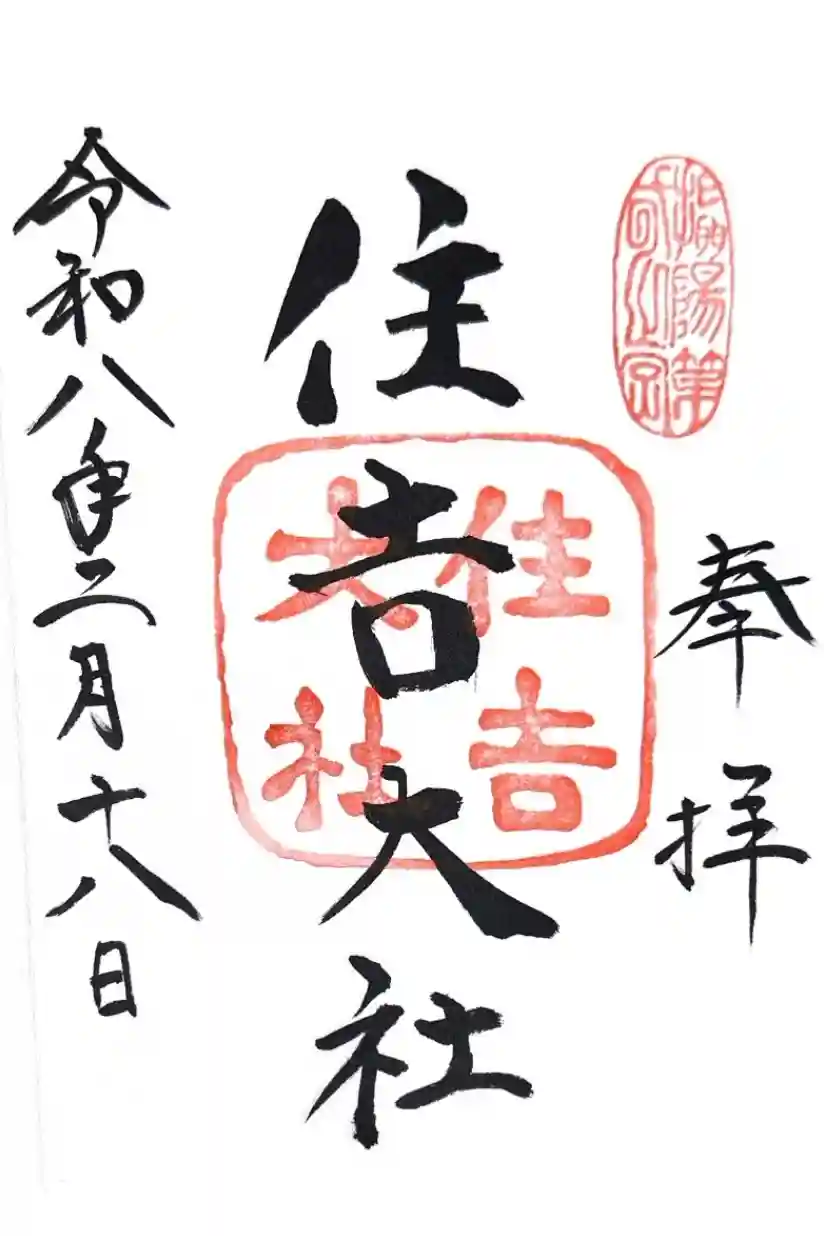 陽第
奉拝
住吉大社
住吉
大社
令和八年二月十八日